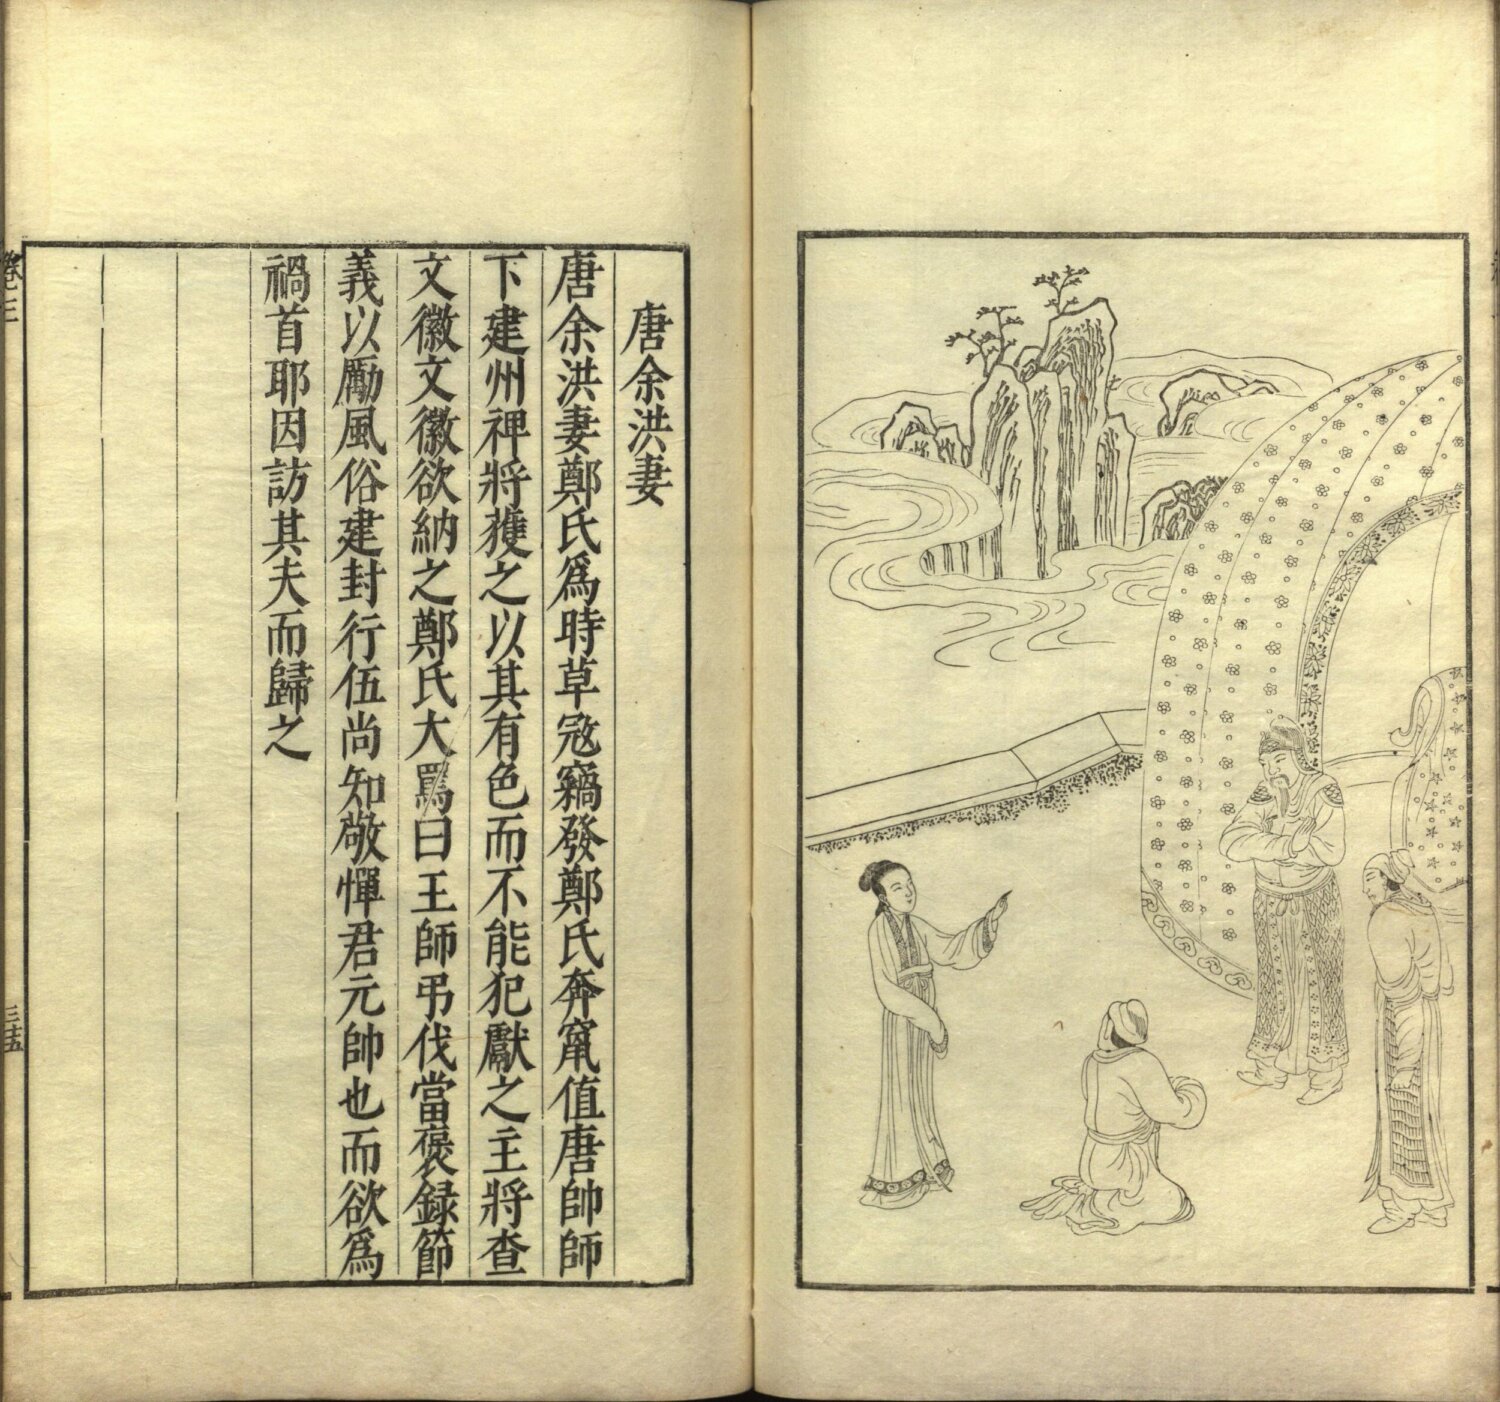 唐余洪妻
唐余洪妻鄭氏爲時草宼竊發鄭氏奔竄值唐帥師
下建州禆將獲之以其有色而不能犯獻之主將查
文徽文徽欲納之鄭氏大罵曰王師弔伐當褒録節
義以勵風俗建封行伍尚知敬憚君元帥也而欲爲
禍首耶因訪其夫而歸之
卷三
三十五